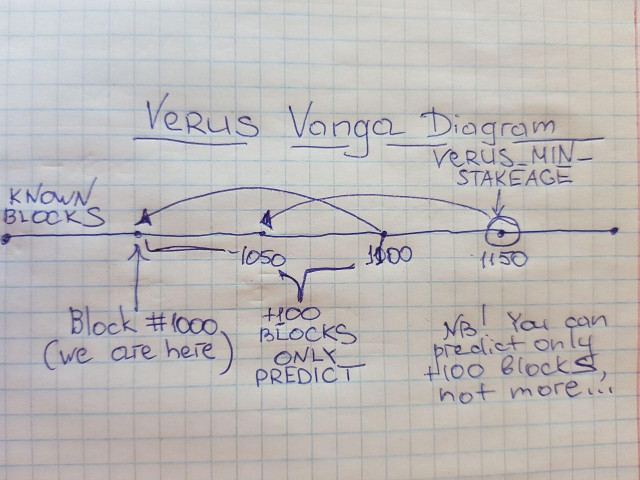 Verus Vanga Diagram
VERUS_MIN_
STAKEAGE
KNOWN
BLOCKS
1050
1100
1150
Block #1000
(we are here)
+100
BLOCKS
ONLY
PREDICT
NB! You can
predict only
+100 blocks,
not more...